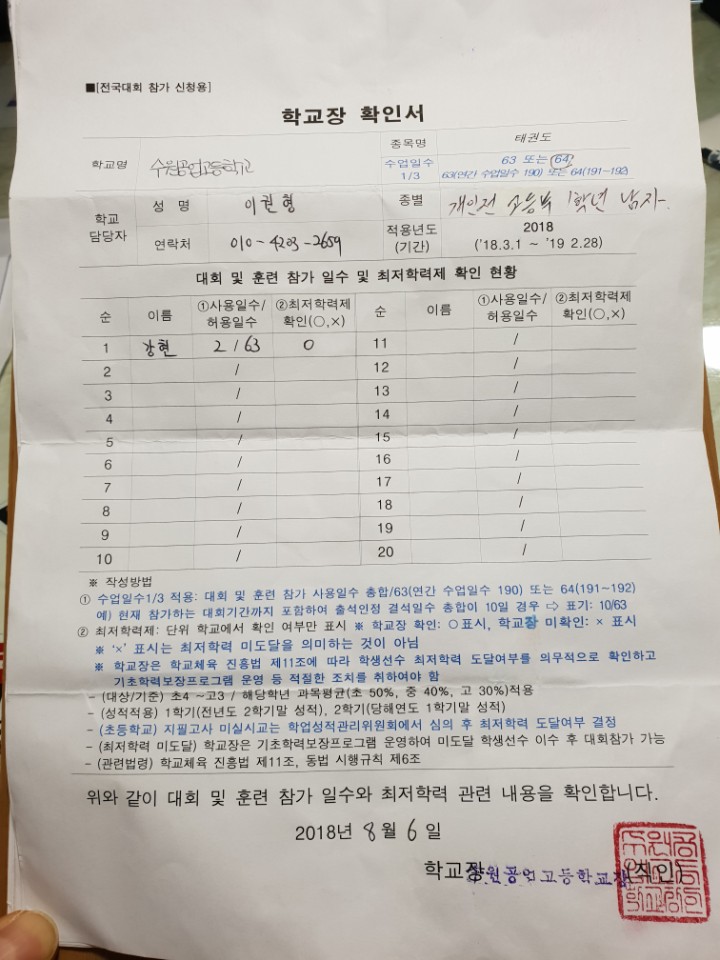 ■[전국대회 참가 신청용]
학교장 확인서
학교명 수원공업고등학교 종목명 태권도
수업일수 1/3 63 또는 64
63(연간 수업일수 190) 또는 64(191~192)
학교 담당자 성 명 이권형 종별 개인전 고등부 1학년 남자
연락처 010-4203-2659 적용년도 (기간) 2018 ('18.3.1 ~ '19 2.28)
대회 및 훈련 참가 일수 및 최저학력제 확인 현황
순 이름 ①사용일수/허용일수 ②최저학력제 확인(○,×) 순 이름 ①사용일수/허용일수 ②최저학력제 확인(○,×)
1 강현 2/63 ○ 11 /
2 / 12 /
3 / 13 /
4 / 14 /
5 / 15 /
6 / 16 /
7 / 17 /
8 / 18 /
9 / 19 /
10 / 20 /
※ 작성방법
① 수업일수1/3 적용: 대회 및 훈련 참가 사용일수 총합/63(연간 수업일수 190) 또는 64(191~192)
예) 현재 참가하는 대회기간까지 포함하여 출석인정 결석일수 총합이 10일 경우 ⇨ 표기: 10/63
② 최저학력제: 단위 학교에서 확인 여부만 표시 ※ 학교장 확인: ○표시, 학교장 미확인: × 표시
※ '×' 표시는 최저학력 미도달을 의미하는 것이 아님
※ 학교장은 학교체육 진흥법 제11조에 따라 학생선수 최저학력 도달여부를 의무적으로 확인하고
기초학력보장프로그램 운영 등 적절한 조치를 취하여야 함
- (대상/기준) 초4 ~고3 / 해당학년 과목평균(초 50%, 중 40%, 고 30%)적용
- (성적적용) 1학기(전년도 2학기말 성적), 2학기(당해연도 1학기말 성적)
- (초등학교) 지필고사 미실시교는 학업성적관리위원회에서 심의 후 최저학력 도달여부 결정
- (최저학력 미도달) 학교장은 기초학력보장프로그램 운영하여 미도달 학생선수 이수 후 대회참가 가능
- (관련법령) 학교체육 진흥법 제11조, 동법 시행규칙 제6조
위와 같이 대회 및 훈련 참가 일수와 최저학력 관련 내용을 확인합니다.
2018년 8월 6일
학교장 수원공업고등학교장 (직인)